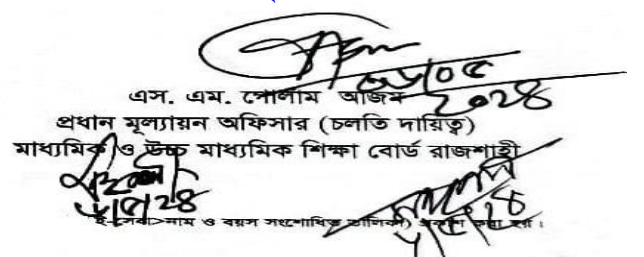 ০৮/০৫
২০২৪
এস. এম. গোলাম আজম
প্রধান মূল্যায়ন অফিসার (চলতি দায়িত্ব)
মাধ্যমিক ও উচ্চ মাধ্যমিক শিক্ষা বোর্ড রাজশাহী
৮/৫/২৪
৮/৫/২৪
ই-সেবা>নাম ও বয়স সংশোধিত তালিকা) করা হয়।